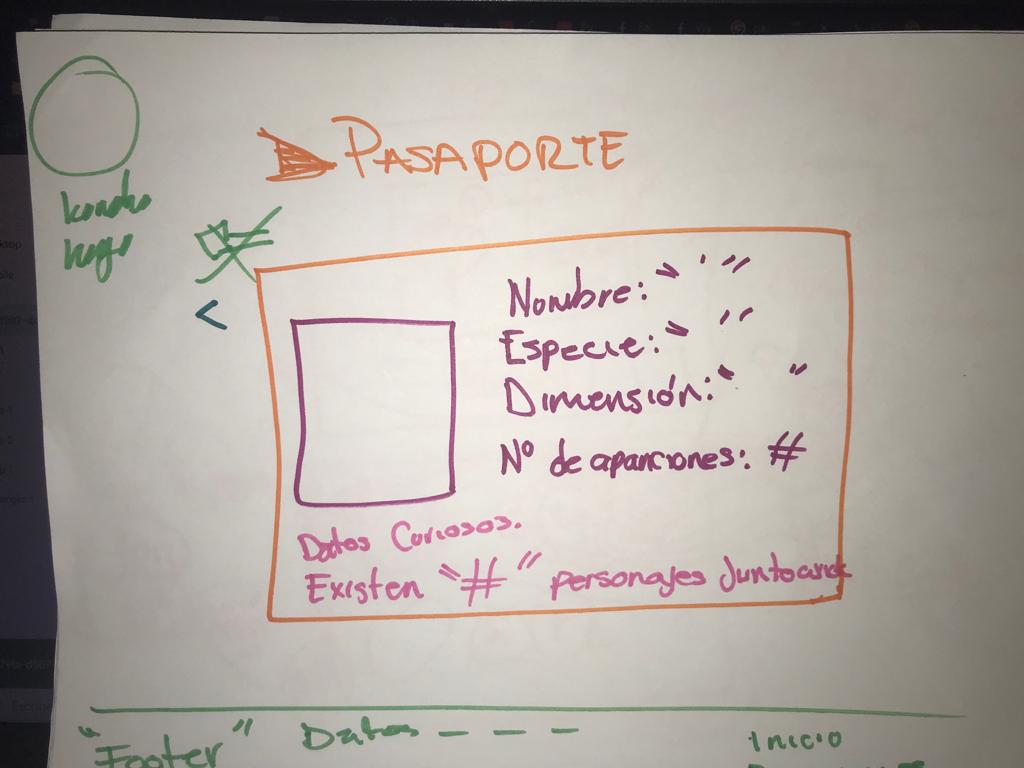 PASAPORTE
<
Nombre: " ' "
Especie: " "
Dimensión: " "
Nº de apariciones: #
Datos Curiosos.
Existen "#" personajes Junto
"Footer"
Datos _ _ _
Inicio